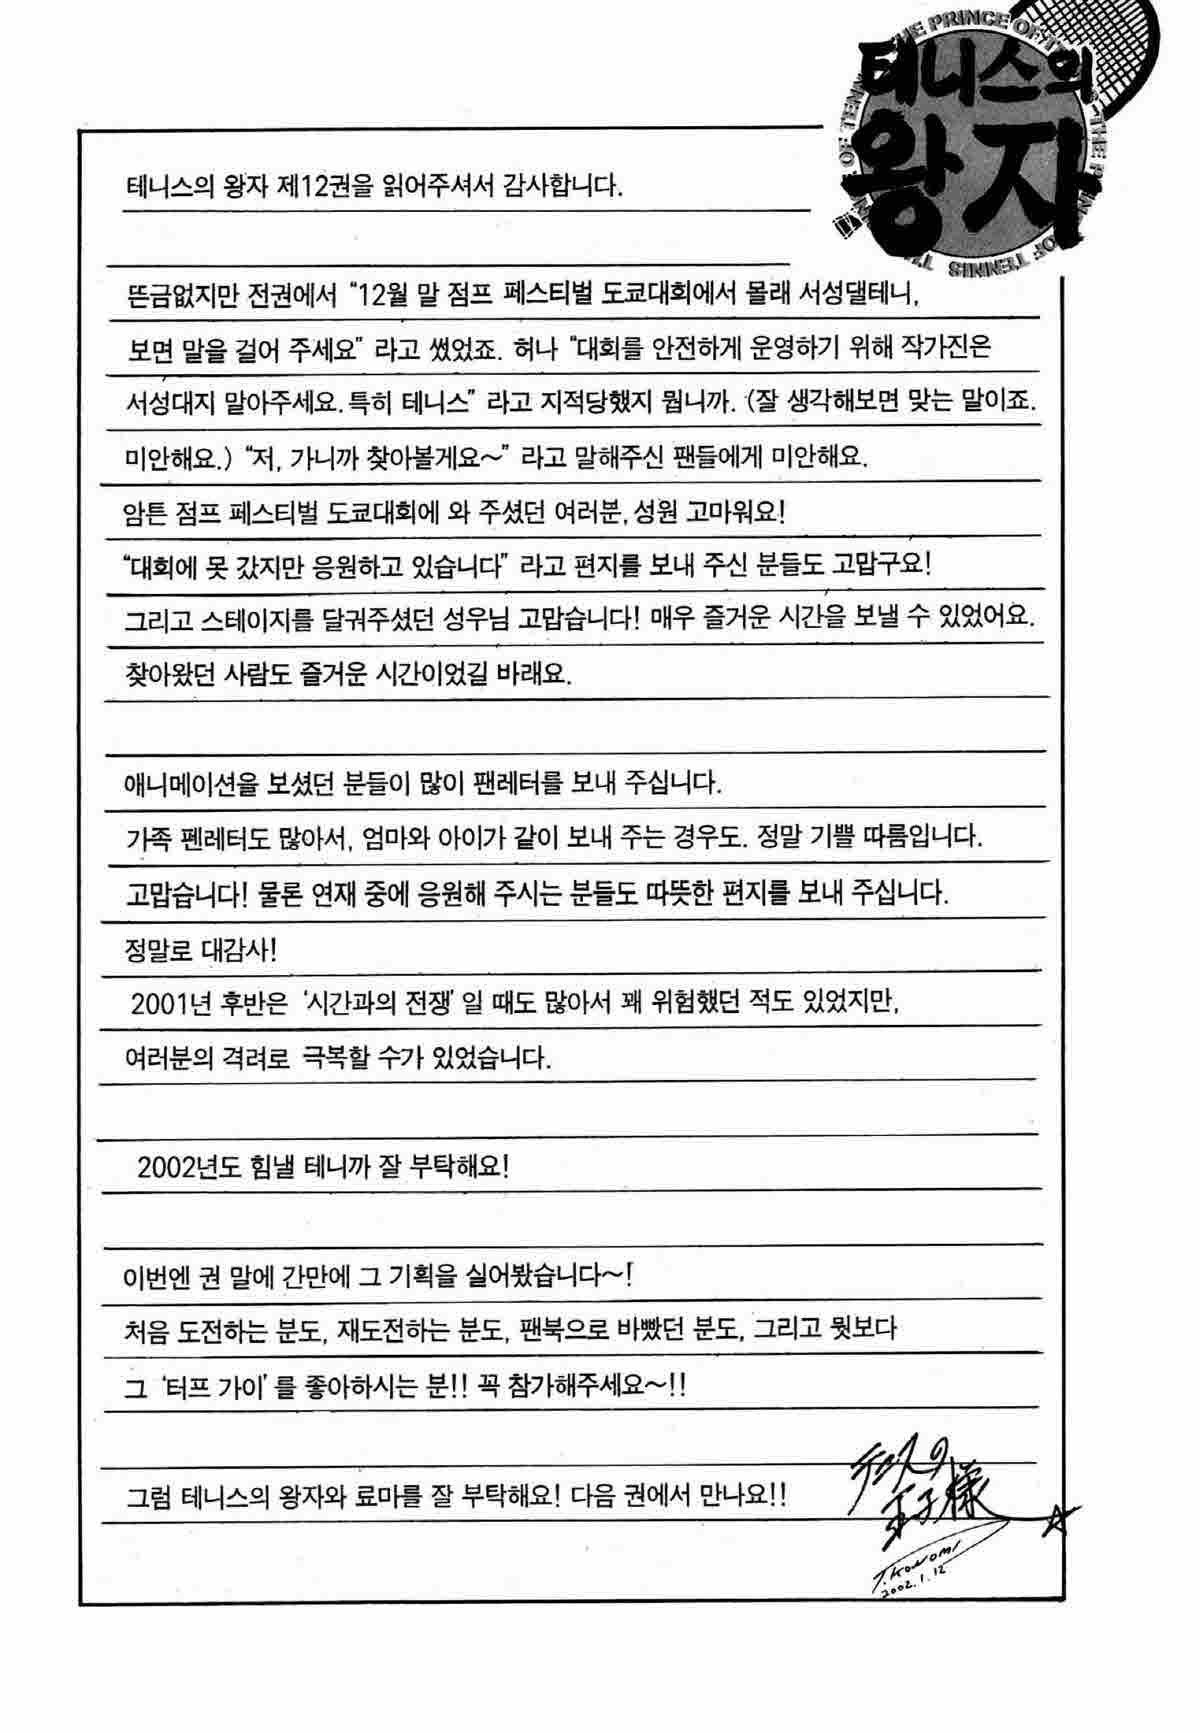 THE PRINCE OF TENNIS
테니스의
왕자
테니스의 왕자 제12권을 읽어주셔서 감사합니다.
뜬금없지만 전권에서 “12월 말 점프 페스티벌 도쿄대회에서 몰래 서성댈테니,
보면 말을 걸어 주세요” 라고 썼었죠. 허나 “대회를 안전하게 운영하기 위해 작가진은
서성대지 말아주세요. 특히 테니스” 라고 지적당했지 뭡니까. (잘 생각해보면 맞는 말이죠.
미안해요.) “저, 가니까 찾아볼게요~” 라고 말해주신 팬들에게 미안해요.
암튼 점프 페스티벌 도쿄대회에 와 주셨던 여러분, 성원 고마워요!
“대회에 못 갔지만 응원하고 있습니다” 라고 편지를 보내 주신 분들도 고맙구요!
그리고 스테이지를 달궈주셨던 성우님 고맙습니다! 매우 즐거운 시간을 보낼 수 있었어요.
찾아왔던 사람도 즐거운 시간이었길 바래요.
애니메이션을 보셨던 분들이 많이 팬레터를 보내 주십니다.
가족 펜레터도 많아서, 엄마와 아이가 같이 보내 주는 경우도. 정말 기쁠 따름입니다.
고맙습니다! 물론 연재 중에 응원해 주시는 분들도 따뜻한 편지를 보내 주십니다.
정말로 대감사!
2001년 후반은 ‘시간과의 전쟁’ 일 때도 많아서 꽤 위험했던 적도 있었지만,
여러분의 격려로 극복할 수가 있었습니다.
2002년도 힘낼 테니까 잘 부탁해요!
이번엔 권 말에 간만에 그 기획을 실어봤습니다~!
처음 도전하는 분도, 재도전하는 분도, 팬북으로 바빴던 분도, 그리고 뭣보다
그 ‘터프 가이’ 를 좋아하시는 분!! 꼭 참가해주세요~!!
그럼 테니스의 왕자와 료마를 잘 부탁해요! 다음 권에서 만나요!!
テニスの
王子様
T.KONOMI
2002.1.12